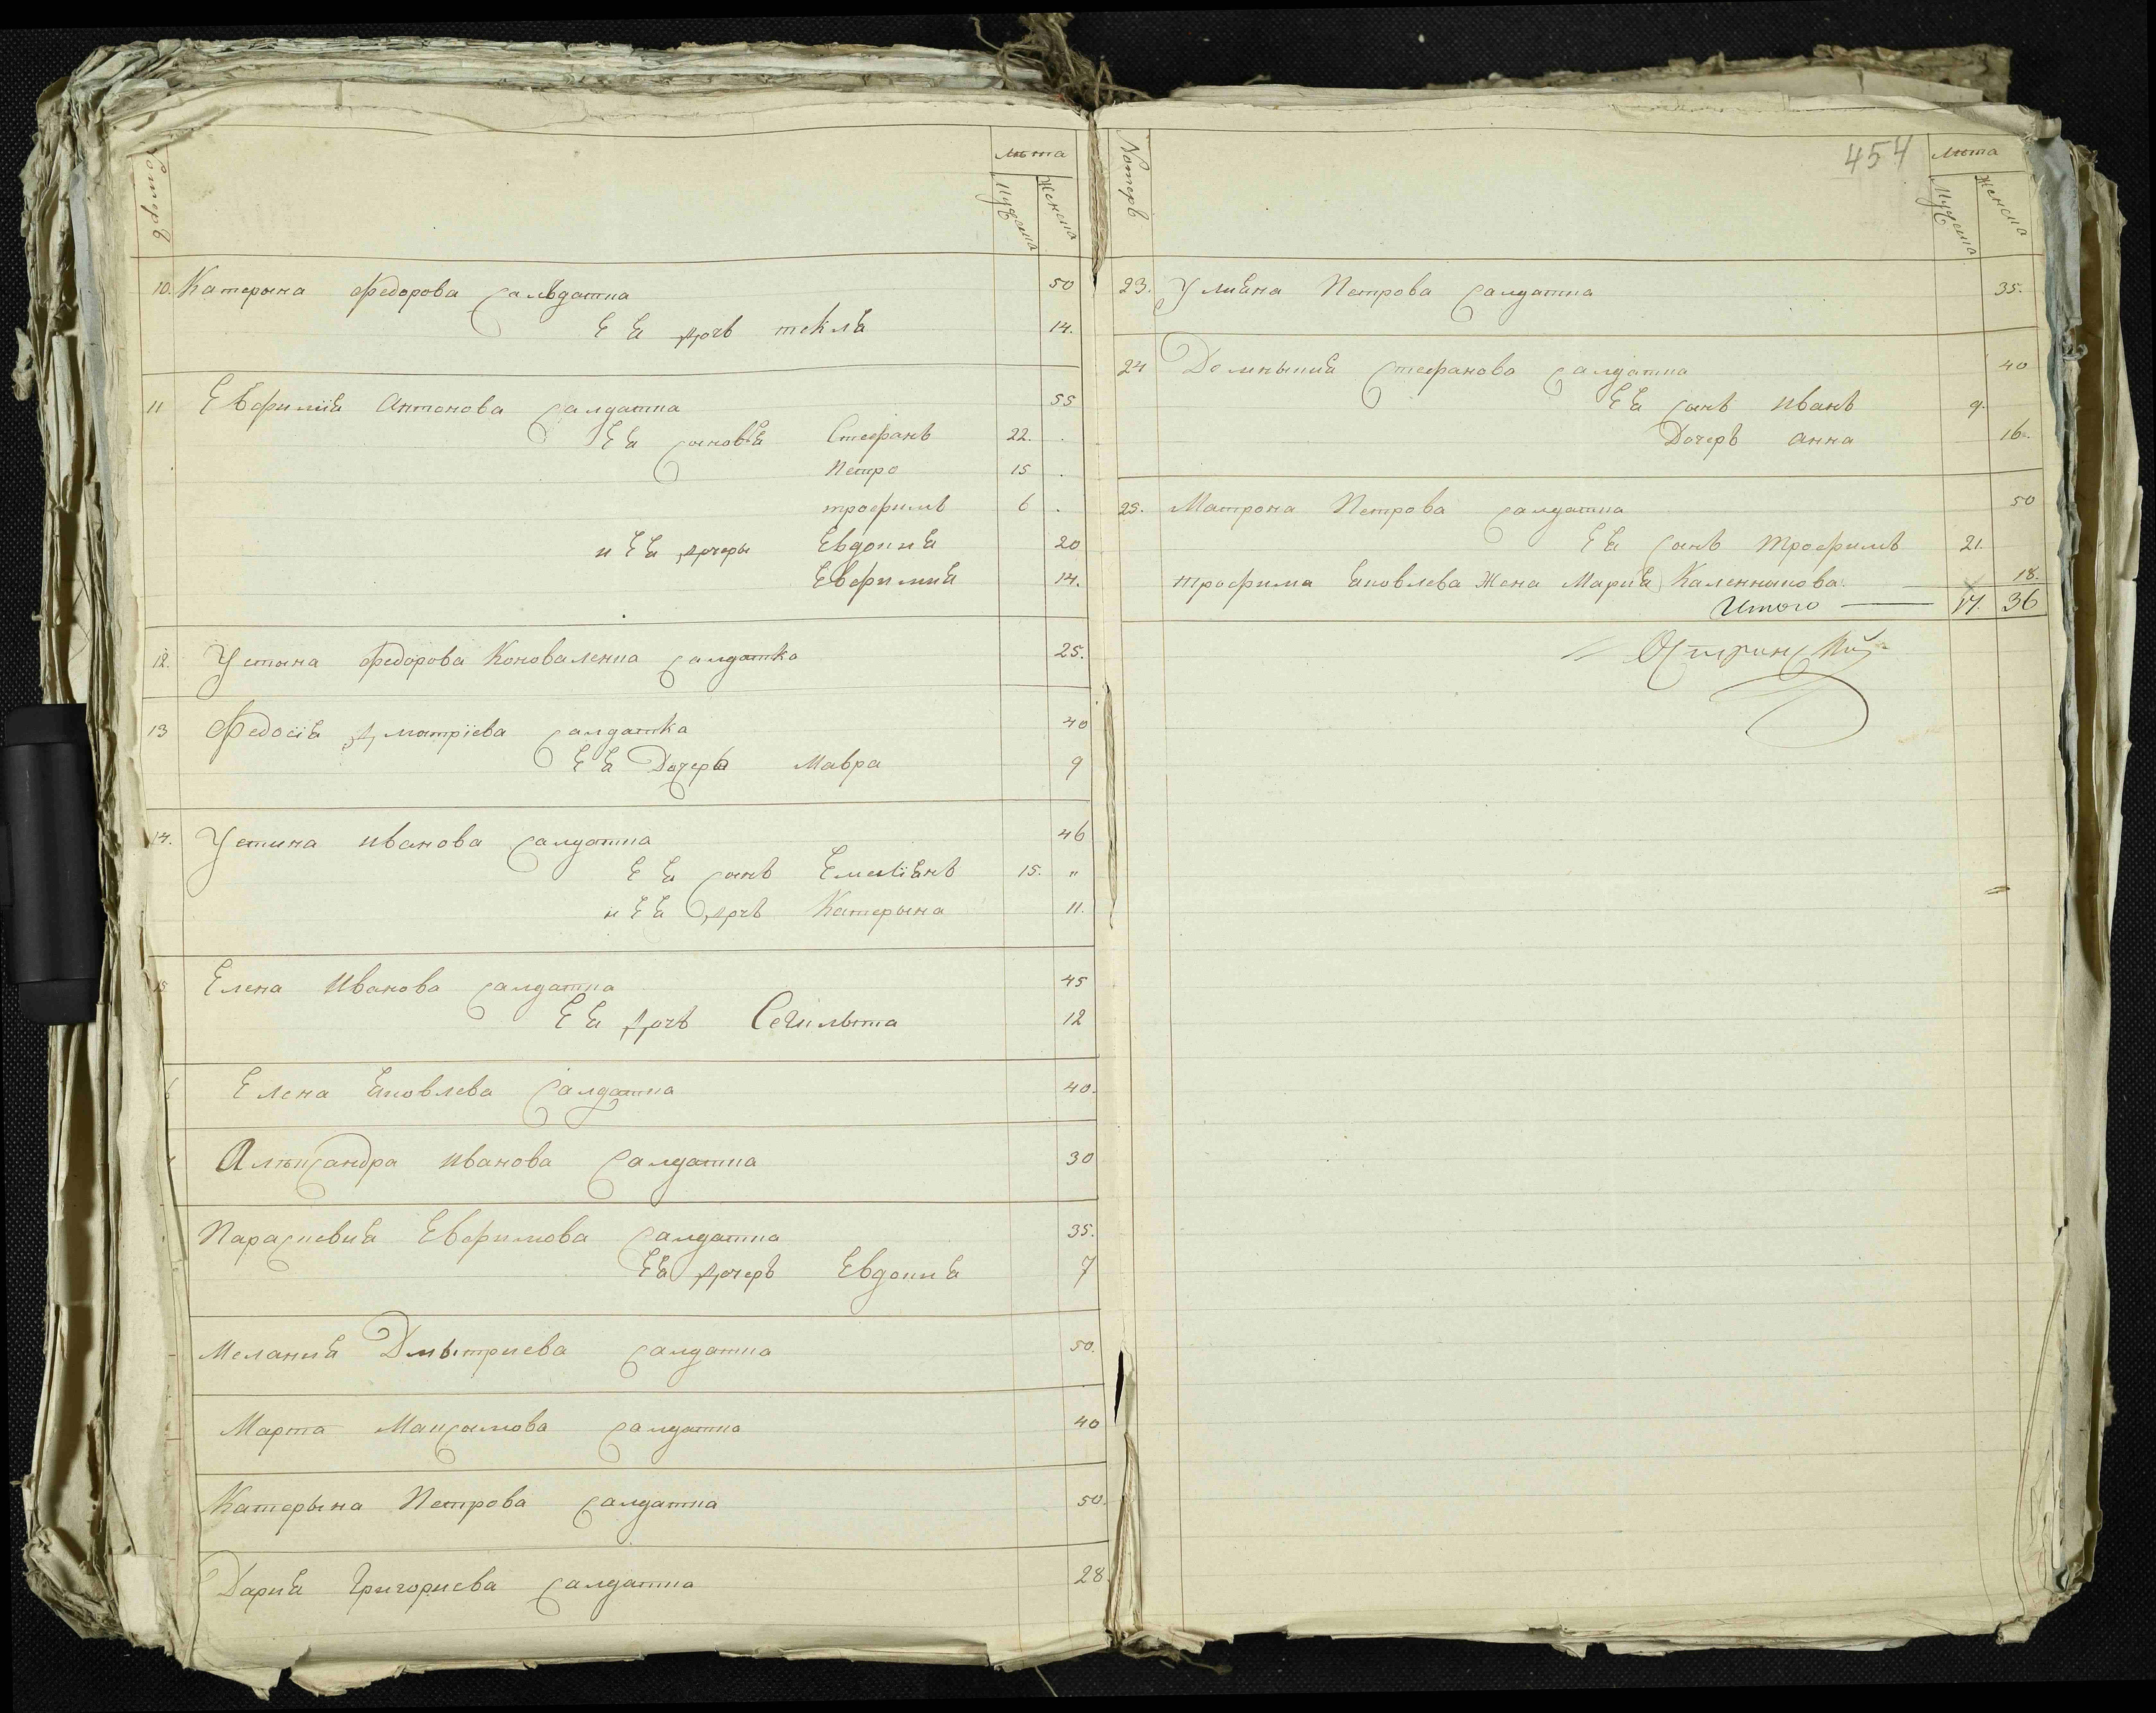 Номеръ
лѣта
Мужска
Женска
10. Катерына Федорова Сальдатка 50
Еѣ дочь текля 14.
11 Евфиміѣ Антонова Салдатка 55
Еѣ сыновѣ Стефанъ 22.
Петро 15
трофимъ 6
и Еѣ дочеры Евдокиѣ 20
Евфимиѣ 14.
12. Устына Федорова Коноваленка Салдатка 25.
13 Федосіѣ Дматріева Салдатка 40
Еѣ Дочерь Мавра 9
14. Устина иванова Салдатка 46
Еѣ сынъ Емеліѣнъ 15. "
и Еѣ дочь Катерына 11.
15 Елена Иванова Салдатка 45
Еѣ дочь 12
6 Елена Ѣковлева Салдатка 40.
Алѣксандра иванова Салдатка 30
Параскевиѣ Евфимова Салдатка 35.
Еѣ дочерь Евдокиѣ 7
Меланиѣ Дмытриева Салдатка 50.
Марта Максымова Салдатка 40
Катерына Петрова Салдатка 50.
Дариѣ Григориева Салдатка 28.
Номеръ
454
лѣта
Мужска
Женска
23. Улиѣна Петрова Салдатка 35.
24 Домныкиѣ Стефанова Салдатка 40
Еѣ сынъ иванъ 9.
Дочерь анна 16.
25. Матрона Петрова Салдатка 50
Еѣ сынъ трофимъ 21.
трофима Ѣковлева Жена Мариѣ Каленникова. 18.
Итого — 17. 36